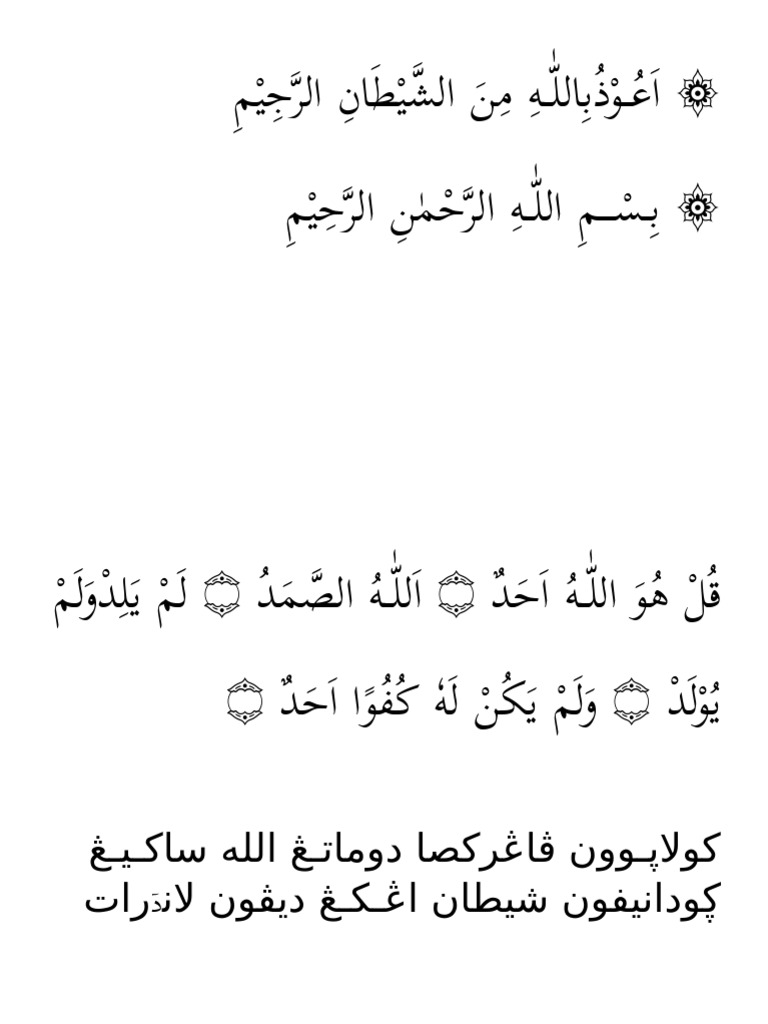 ۞ اَعُـوْذُبِاللّٰـهِ مِنَ الشَّيْطَانِ الرَّجِيْمِ
۞ بِـسْــمِ اللّٰـهِ الرَّحْمٰنِ الرَّحِيْمِ
قُلْ هُوَ اللّٰـهُ اَحَدٌ ۝ اَللّٰـهُ الصَّمَدُ ۝ لَمْ يَلِدْوَلَمْ
يُوْلَدْ ۝ وَلَمْ يَكُنْ لَهٗ كُفُوًا اَحَدٌ ۝
كولاڽـوون ڤاڠركصا دوماتـڠ الله ساكـيـڠ
ڮودانيفون شيطان اڠـكـڠ ديڤون لانڎرات